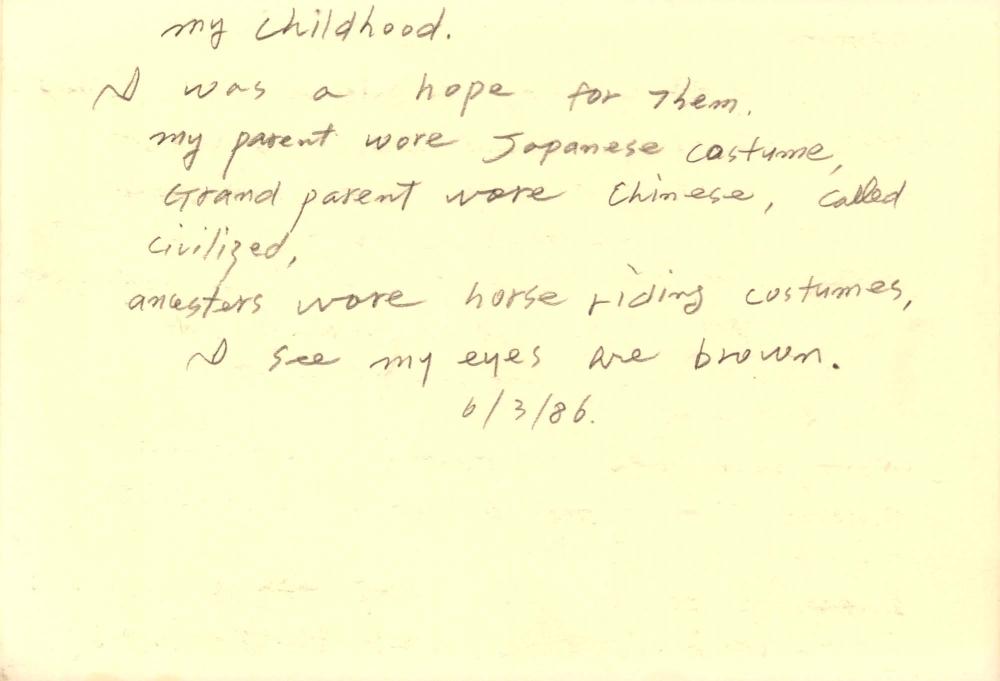 my childhood.
I was a hope for them.
my parent wore Japanese costume,
Grand parent wore Chinese, called
civilized,
ancesters wore horse riding costumes,
I see my eyes are brown.
6/3/86.